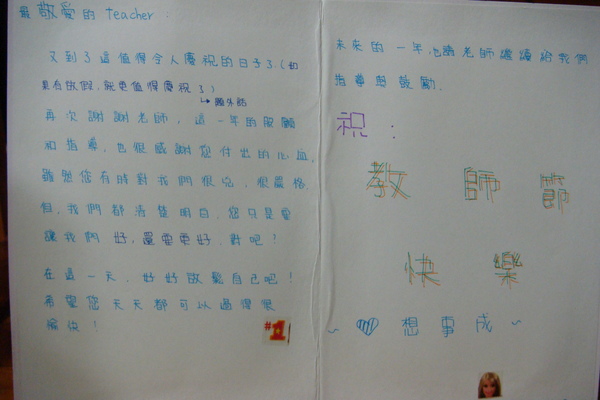 最敬愛的 Teacher :
又到了這值得令人慶祝的日子了(如
果有放假,就更值得慶祝了)
↳題外話
再次謝謝老師,這一年的照顧
和指導,也很感謝您付出的心血,
雖然您有時對我們很兇,很嚴格,
但,我們都清楚明白,您只是要
讓我們 好,還要更好,對吧!
在這一天,好好放鬆自己吧!
希望您天天都可以過得很
愉快!
#1
未來的一年也請老師繼續給我們
指導與鼓勵.
祝:
教 師 節
快 樂
~ ♡ 想 事 成 ~